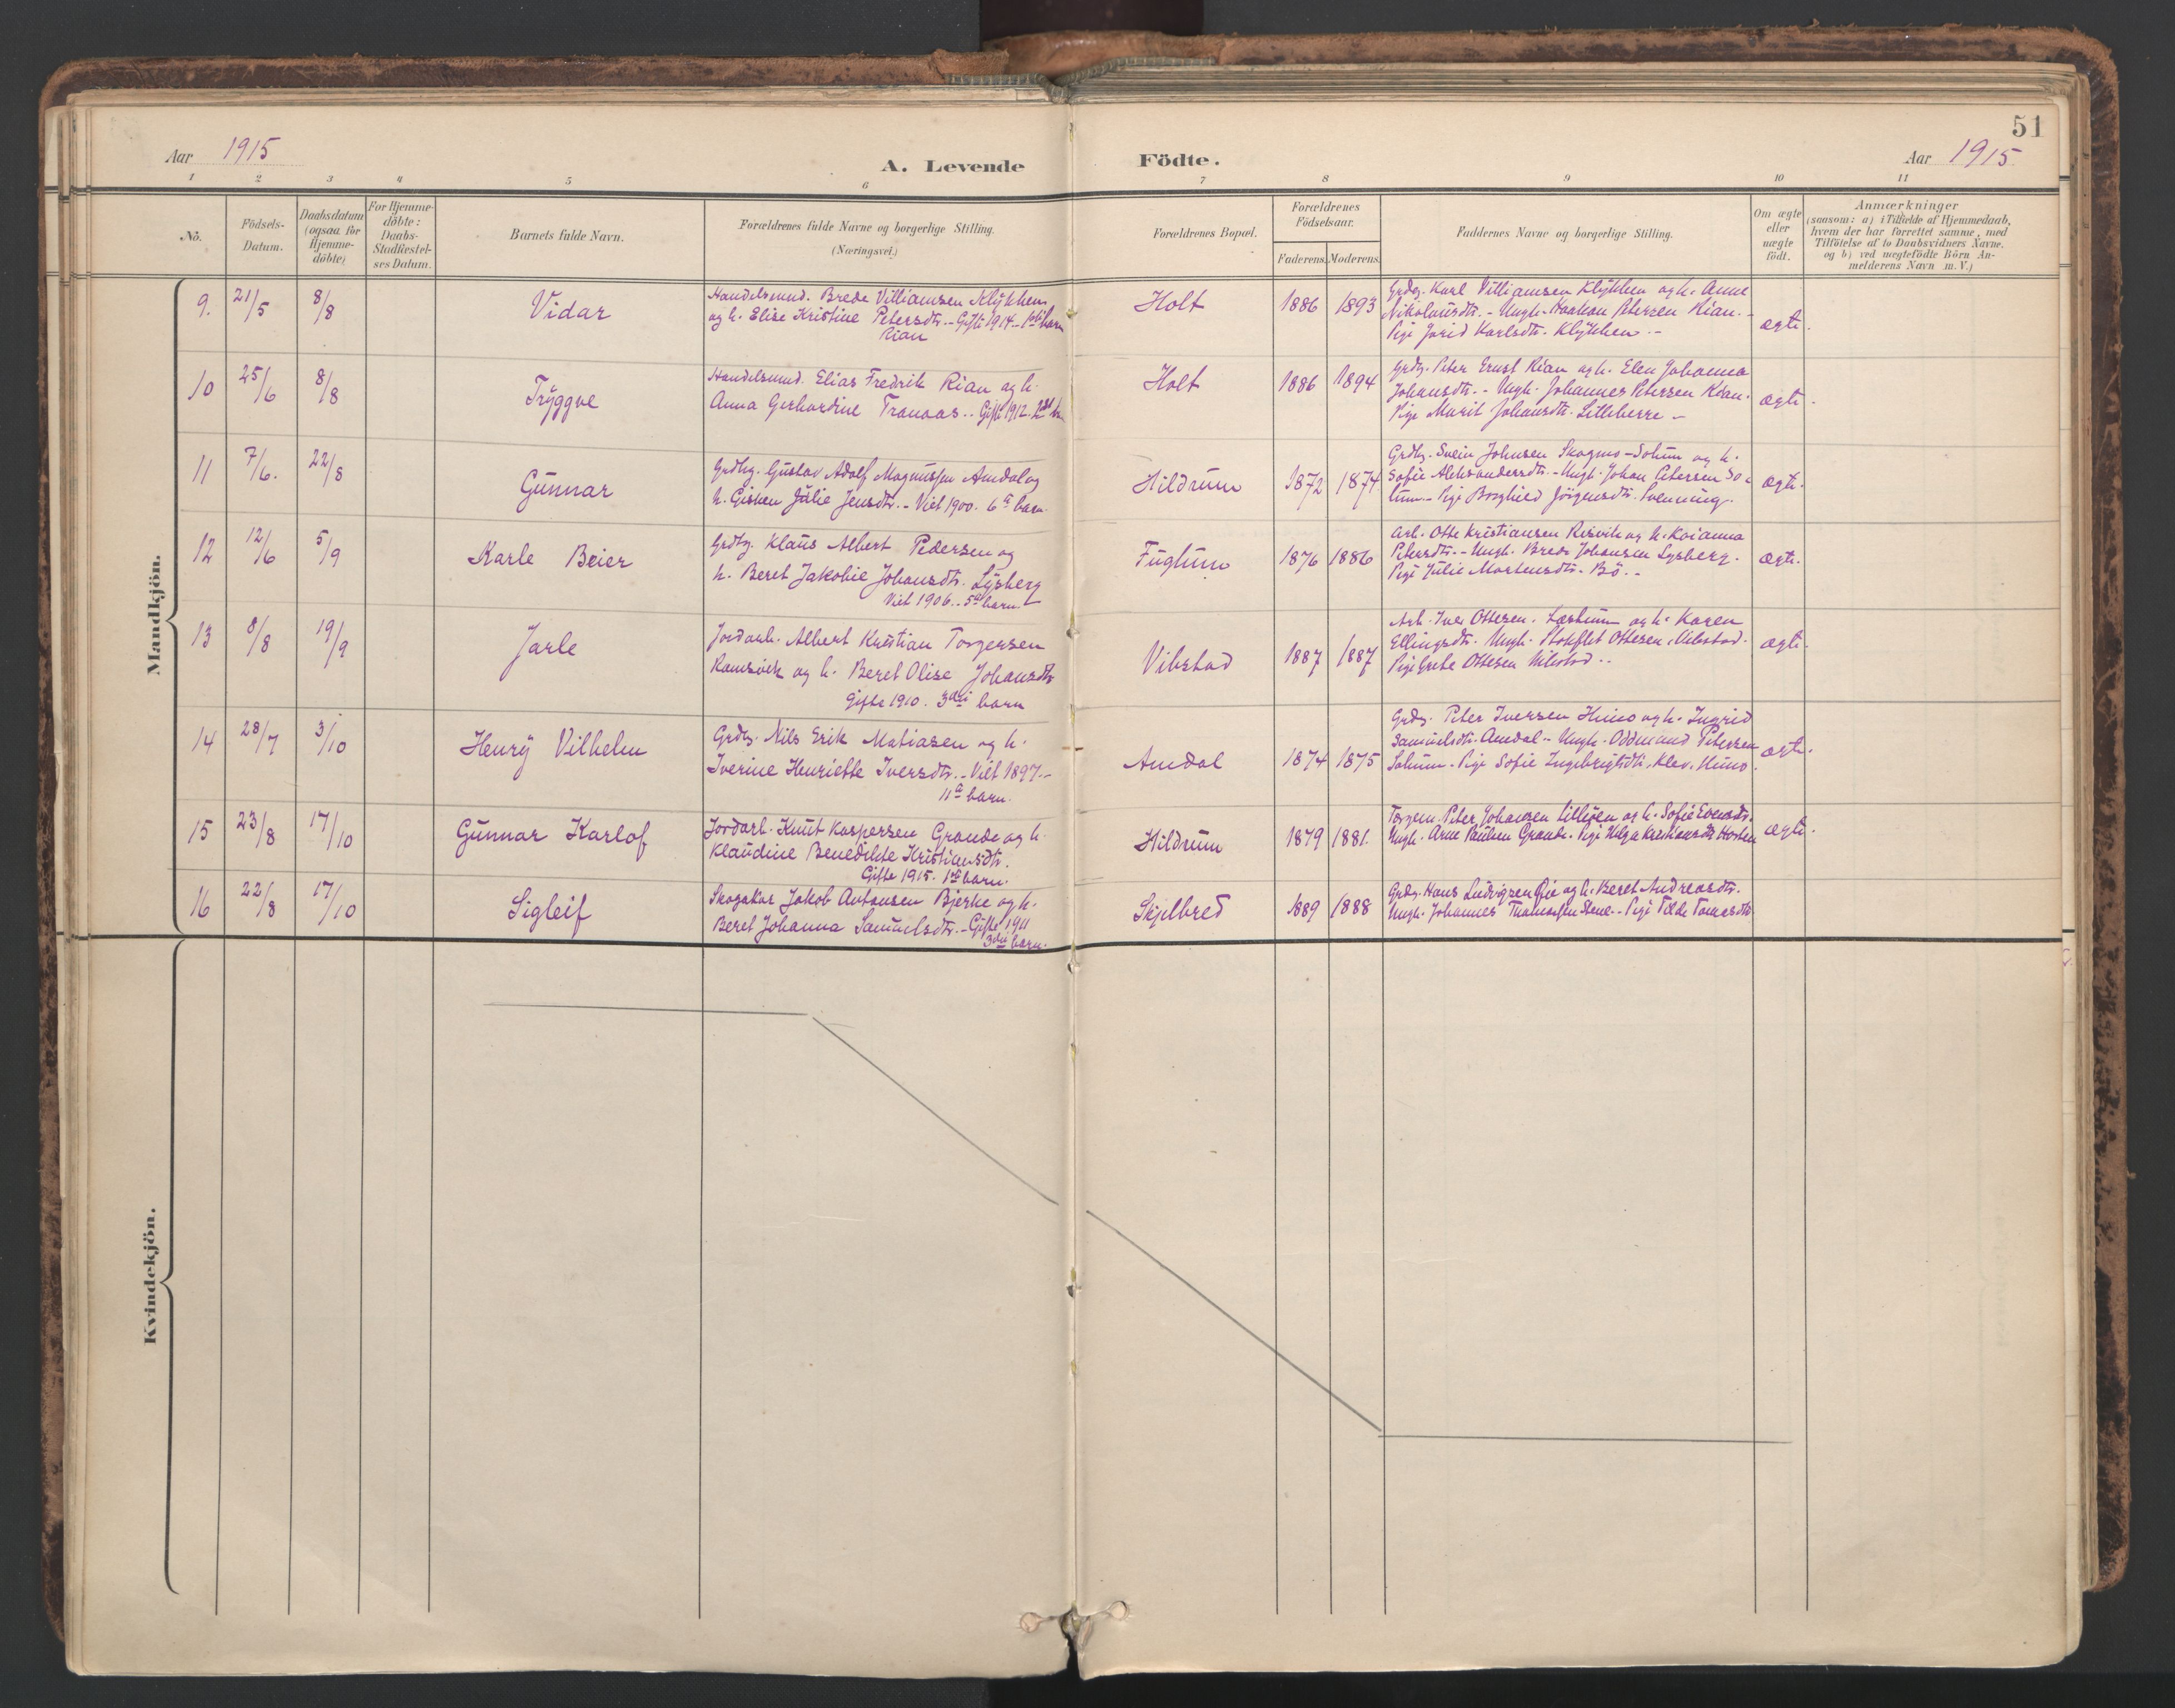 51
Aar 1915
A. Levende Födte.
Aar 1915.
1 2 3 4 5 6 7 8 9 10 11
No.
Födsels-Datum.
Daabsdatum (ogsaa for Hjemme-döbte)
For Hjemme-döbte: Daabs-Stadfæstel-ses Datum.
Barnets fulde Navn.
Forældrenes fulde Navne og borgerlige Stilling.
(Næringsvei.)
Forældrenes Bopæl.
Forældrenes Födselsaar.
Faderens. Moderens.
Faddernes Navne og borgerlige Stilling.
Om ægte eller uægte födt.
Anmærkninger
(saasom: a) i Tilfælde af Hjemmedaab,
hvem der har forrettet samme, med
Tilföielse af to Daabsvidners Navne.
og b) ved uægtefödte Börn An-
melderens Navn m. V.)
Mandkjön.
9. 21/5 8/8 Vidar
Handelsmd. Brede Villiamsen Klykken
og h. Elise Kristine Petersdtr. - Gift 1914 - 1ste barn
Rian
Holt 1886 1893
Grdbr. Karl Villiamsen Klykken og h. Anne
Nikolausdtr. - Ungk. Haakon Petersen Rian. -
Pige Jorid Karlsdtr. Klykken. -
ægte.
10 25/6 8/8 Tryggve
Handelsmd. Elias Fredrik Rian og h.
Anna Gerhardine Tranaas. - Gift 1912. 2det b.
Holt 1886 1894
Grdbr. Peter Ernst Rian og h. Elen Johanna
Johansdtr. - Ungk. Johannes Petersen Rian.
Pige Marit Johansdtr. Lilleberre -
ægte.
11 7/6. 22/8 Gunnar
Grdbr. Gustav Adolf Magnussen Amdal og
h. Gisken Julie Jensdtr. - Viet 1900. 6te barn.
Hildrum 1872 1874
Grdbr. Svein Johnsen Skogmo-Solum og h.
Sofie Aleksandersdtr. - Ungk. Johan Petersen So-
lum - Pige Borghild Jörgensdtr. Svenning.
ægte.
12 12/6 5/9 Karle Beier
Grdbr. Klaus Albert Pedersen og
h. Beret Jakobie Johansdtr. Lysberg
Viet 1906. - 5te barn.
Fuglum 1876 1886
Arb. Otte Kristiansen Risvik og h.
Petersdtr. - Ungk. Brede Johansen Lysberg.
Pige Julie Mortensdtr. Bö. -
ægte.
13 8/8 19/9 Jarle
Jordarb. Albert Kristian Torgersen
Ramsvik og h. Beret Olise Johansdtr
Gifte 1910. 3die barn
Vibstad 1887 1887
Arb. Iver Ottesen. og h. Karen
Ellingsdtr. Ungk. Ottesen, Vibstad.
Pige Grete Ottesen Vibstad. -
ægte.
14 28/7 3/10 Henry Vilhelm
Grdbr. Nils Erik Matiasen og h.
Iverine Henriette Iversdtr. - Viet 1897. -
11te barn.
Amdal 1874 1875
Grdbr. Peter Iversen Himo og h. Ingrid
Samuelsdtr. Amdal - Ungk. Oddmund Petersen
Solum - Pige Sofie Ingebrigtsdtr. Klev. Himo.
ægte.
15 23/8 17/10 Gunnar Karlof
Jordarb. Knut Kaspersen Grande og h.
Klaudine Benedikte Kristiansdtr.
Gifte 1915. 1ste barn.
Hildrum 1879 1881.
Peter Johansen Lilleöen og h. Sofie
Ungk. Arne Paulsen Grande. Pige Helga Kristiansdtr.
ægte.
16 22/8 17/10 Sigleif
Skogakar Jakob Antonsen Bjerke og h.
Beret Johanna Samuelsdtr. - Gifte 1911
3die barn.
Skjelbred 1889 1888
Grdbr. Hans Ludvigsen og h. Beret Andreasdtr.
Ungk. Johannes - Pige Tomasdtr
Kvindekjön.